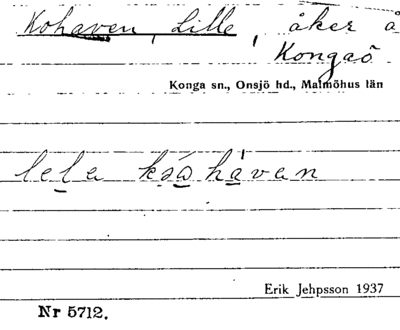 Kohaven, Lille, åker å
Kongaö
Konga sn., Onsjö hd., Malmöhus län
lela ksóa hàvan
Erik Jehpsson 1937
Nr 5712.